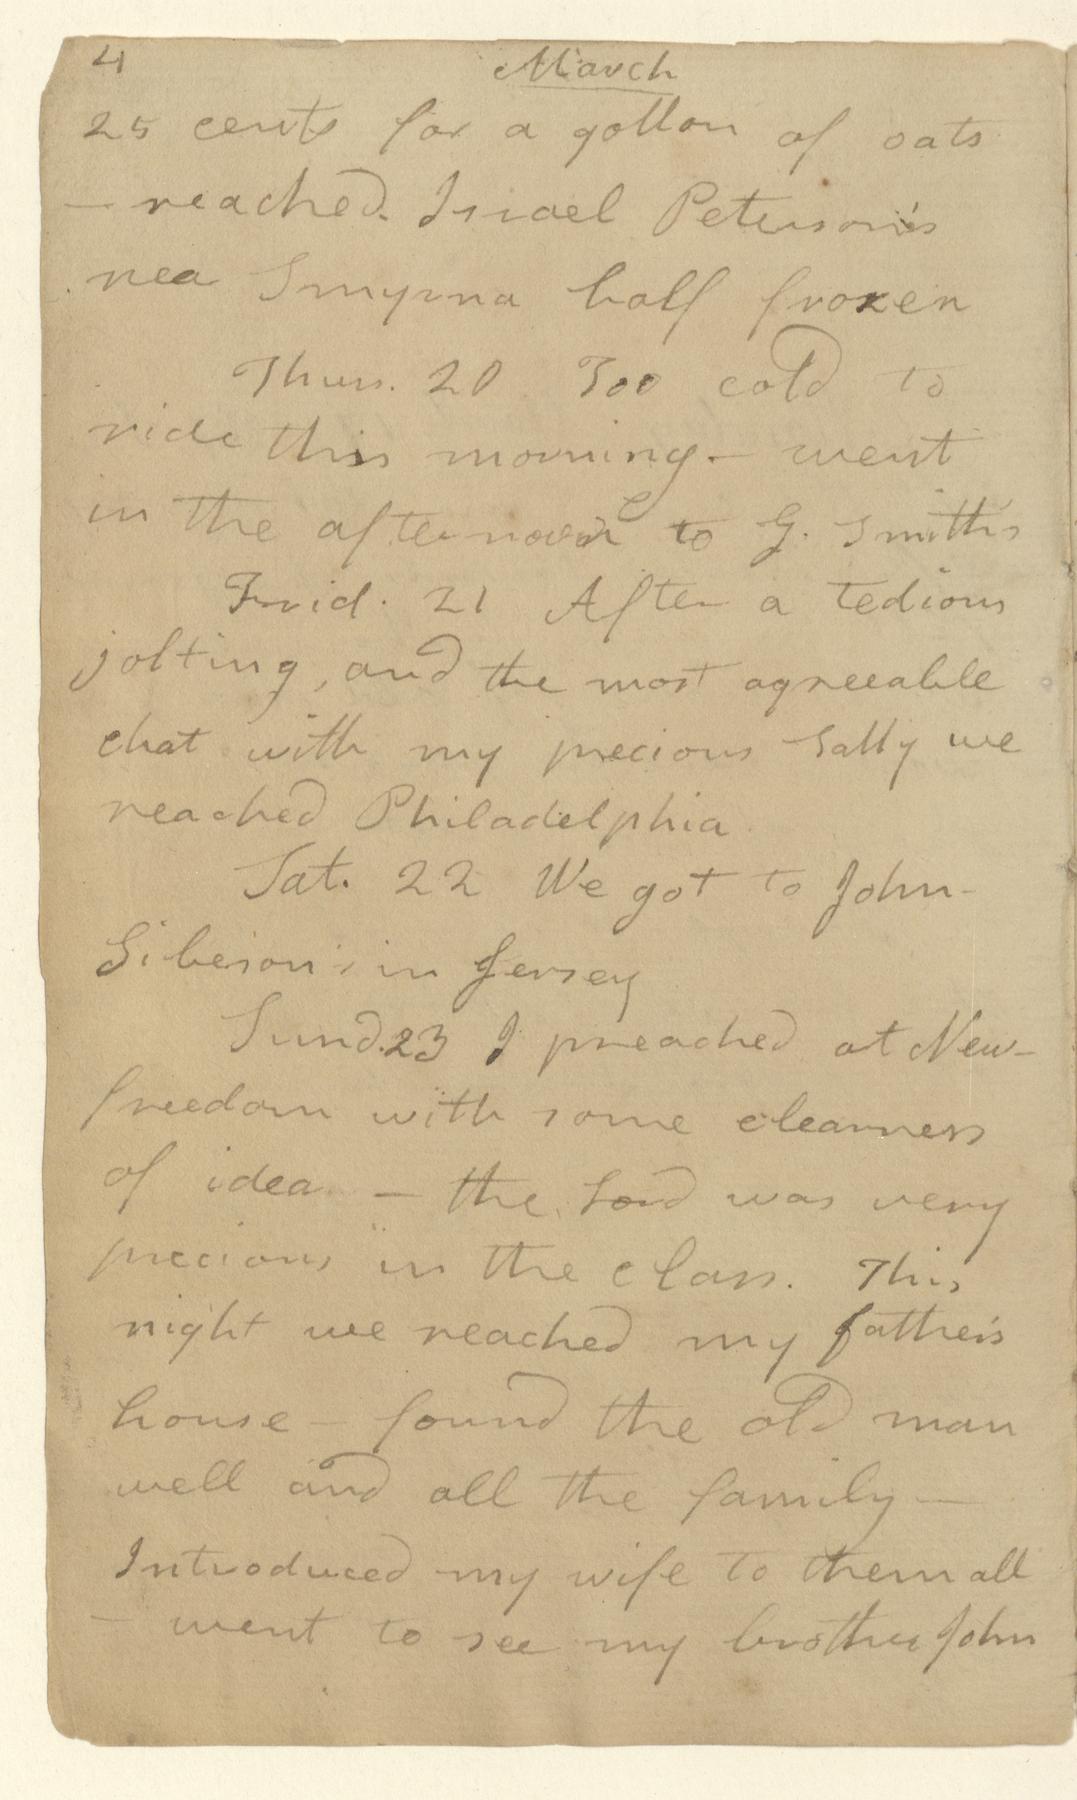 4 March
25 cents for a gollon of oats
— reached Israel Peterson's
nea Smyrna half frozen
Thurs. 20 Too cold to
ride this morning — went
in the afternoon to G. Smith's
Frid. 21 After a tedious
jolting, and the most agreeable
chat with my precious Sally we
reached Philadelphia
Sat. 22 We got to John
Siberson's in Jersey
Sund. 23 I preached at New-
freedom with some clearness
of idea — the Lord was very
precious in the class. This
night we reached my father's
house — found the old man
well and all the family —
Introduced my wife to them all
— went to see my brother John